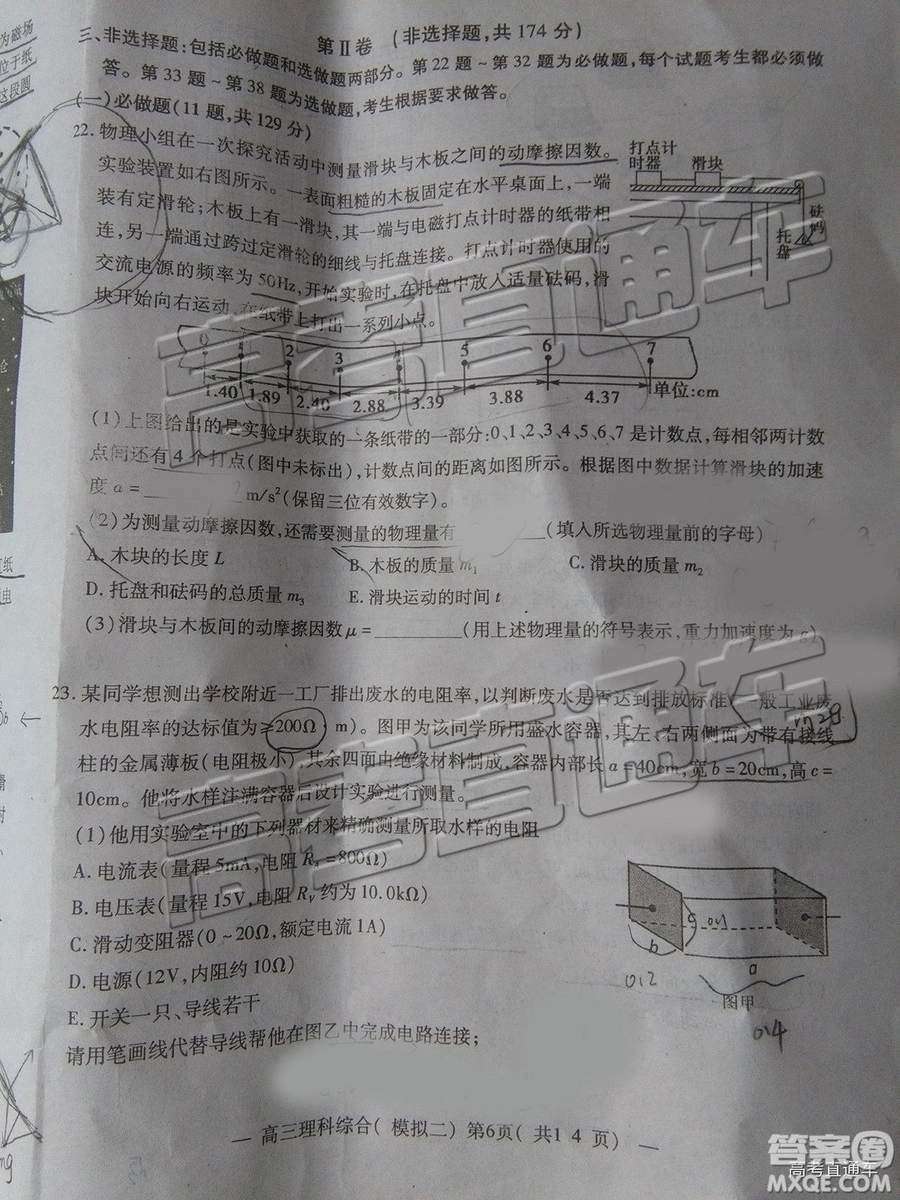 第Ⅱ卷 (非选择题,共174分)
三、非选择题:包括必做题和选做题两部分。第22题～第32题为必做题,每个试题考生都必须做
答。第33题～第38题为选做题,考生根据要求做答。
(一)必做题(11题,共129分)
22. 物理小组在一次探究活动中测量滑块与木板之间的动摩擦因数。
实验装置如右图所示。一表面粗糙的木板固定在水平桌面上,一端
装有定滑轮;木板上有一滑块,其一端与电磁打点计时器的纸带相
连,另一端通过跨过定滑轮的细线与托盘连接。打点计时器使用的
交流电源的频率为50Hz,开始实验时,在托盘中放入适量砝码,滑
块开始向右运动,在纸带上打出一系列小点。
打点计
时器 滑块
砝码
托盘
2 3 5 6 7
1.40 1.89 2.40 2.88 3.39 3.88 4.37 单位:cm
(1)上图给出的是实验中获取的一条纸带的一部分:0、1、2、3、4、5、6、7是计数点,每相邻两计数
点间还有4个打点(图中未标出),计数点间的距离如图所示。根据图中数据计算滑块的加速
度 a = ________ m/s²(保留三位有效数字)。
(2)为测量动摩擦因数,还需要测量的物理量有 (填入所选物理量前的字母)
A. 木块的长度 L B. 木板的质量 m₁ C. 滑块的质量 m₂
D. 托盘和砝码的总质量 m₃ E. 滑块运动的时间 t
(3)滑块与木板间的动摩擦因数 μ = ________ (用上述物理量的符号表示,重力加速度为 g)
23. 某同学想测出学校附近一工厂排出废水的电阻率,以判断废水是否达到排放标准(一般工业废
水电阻率的达标值为≥200Ω·m)。图甲为该同学所用盛水容器,其左、右两侧面为带有接线
柱的金属薄板(电阻极小),其余四面由绝缘材料制成,容器内部长 a=40cm,宽 b=20cm,高 c=
10cm。他将水样注满容器后设计实验进行测量。
(1)他用实验室中的下列器材来精确测量所取水样的电阻
A. 电流表(量程5mA,电阻 Rₐ=800Ω)
B. 电压表(量程15V,电阻 Rᵥ 约为10.0kΩ)
C. 滑动变阻器(0~20Ω,额定电流1A)
D. 电源(12V,内阻约10Ω)
E. 开关一只、导线若干
请用笔画线代替导线帮他在图乙中完成电路连接;
b c 0.1
a
0.2
图甲
0.4
— 高三理科综合( 模拟二) 第6页( 共1 4 页) —
答案圈
高考直通车
MXQE.COM
高考直通车
高考直通车